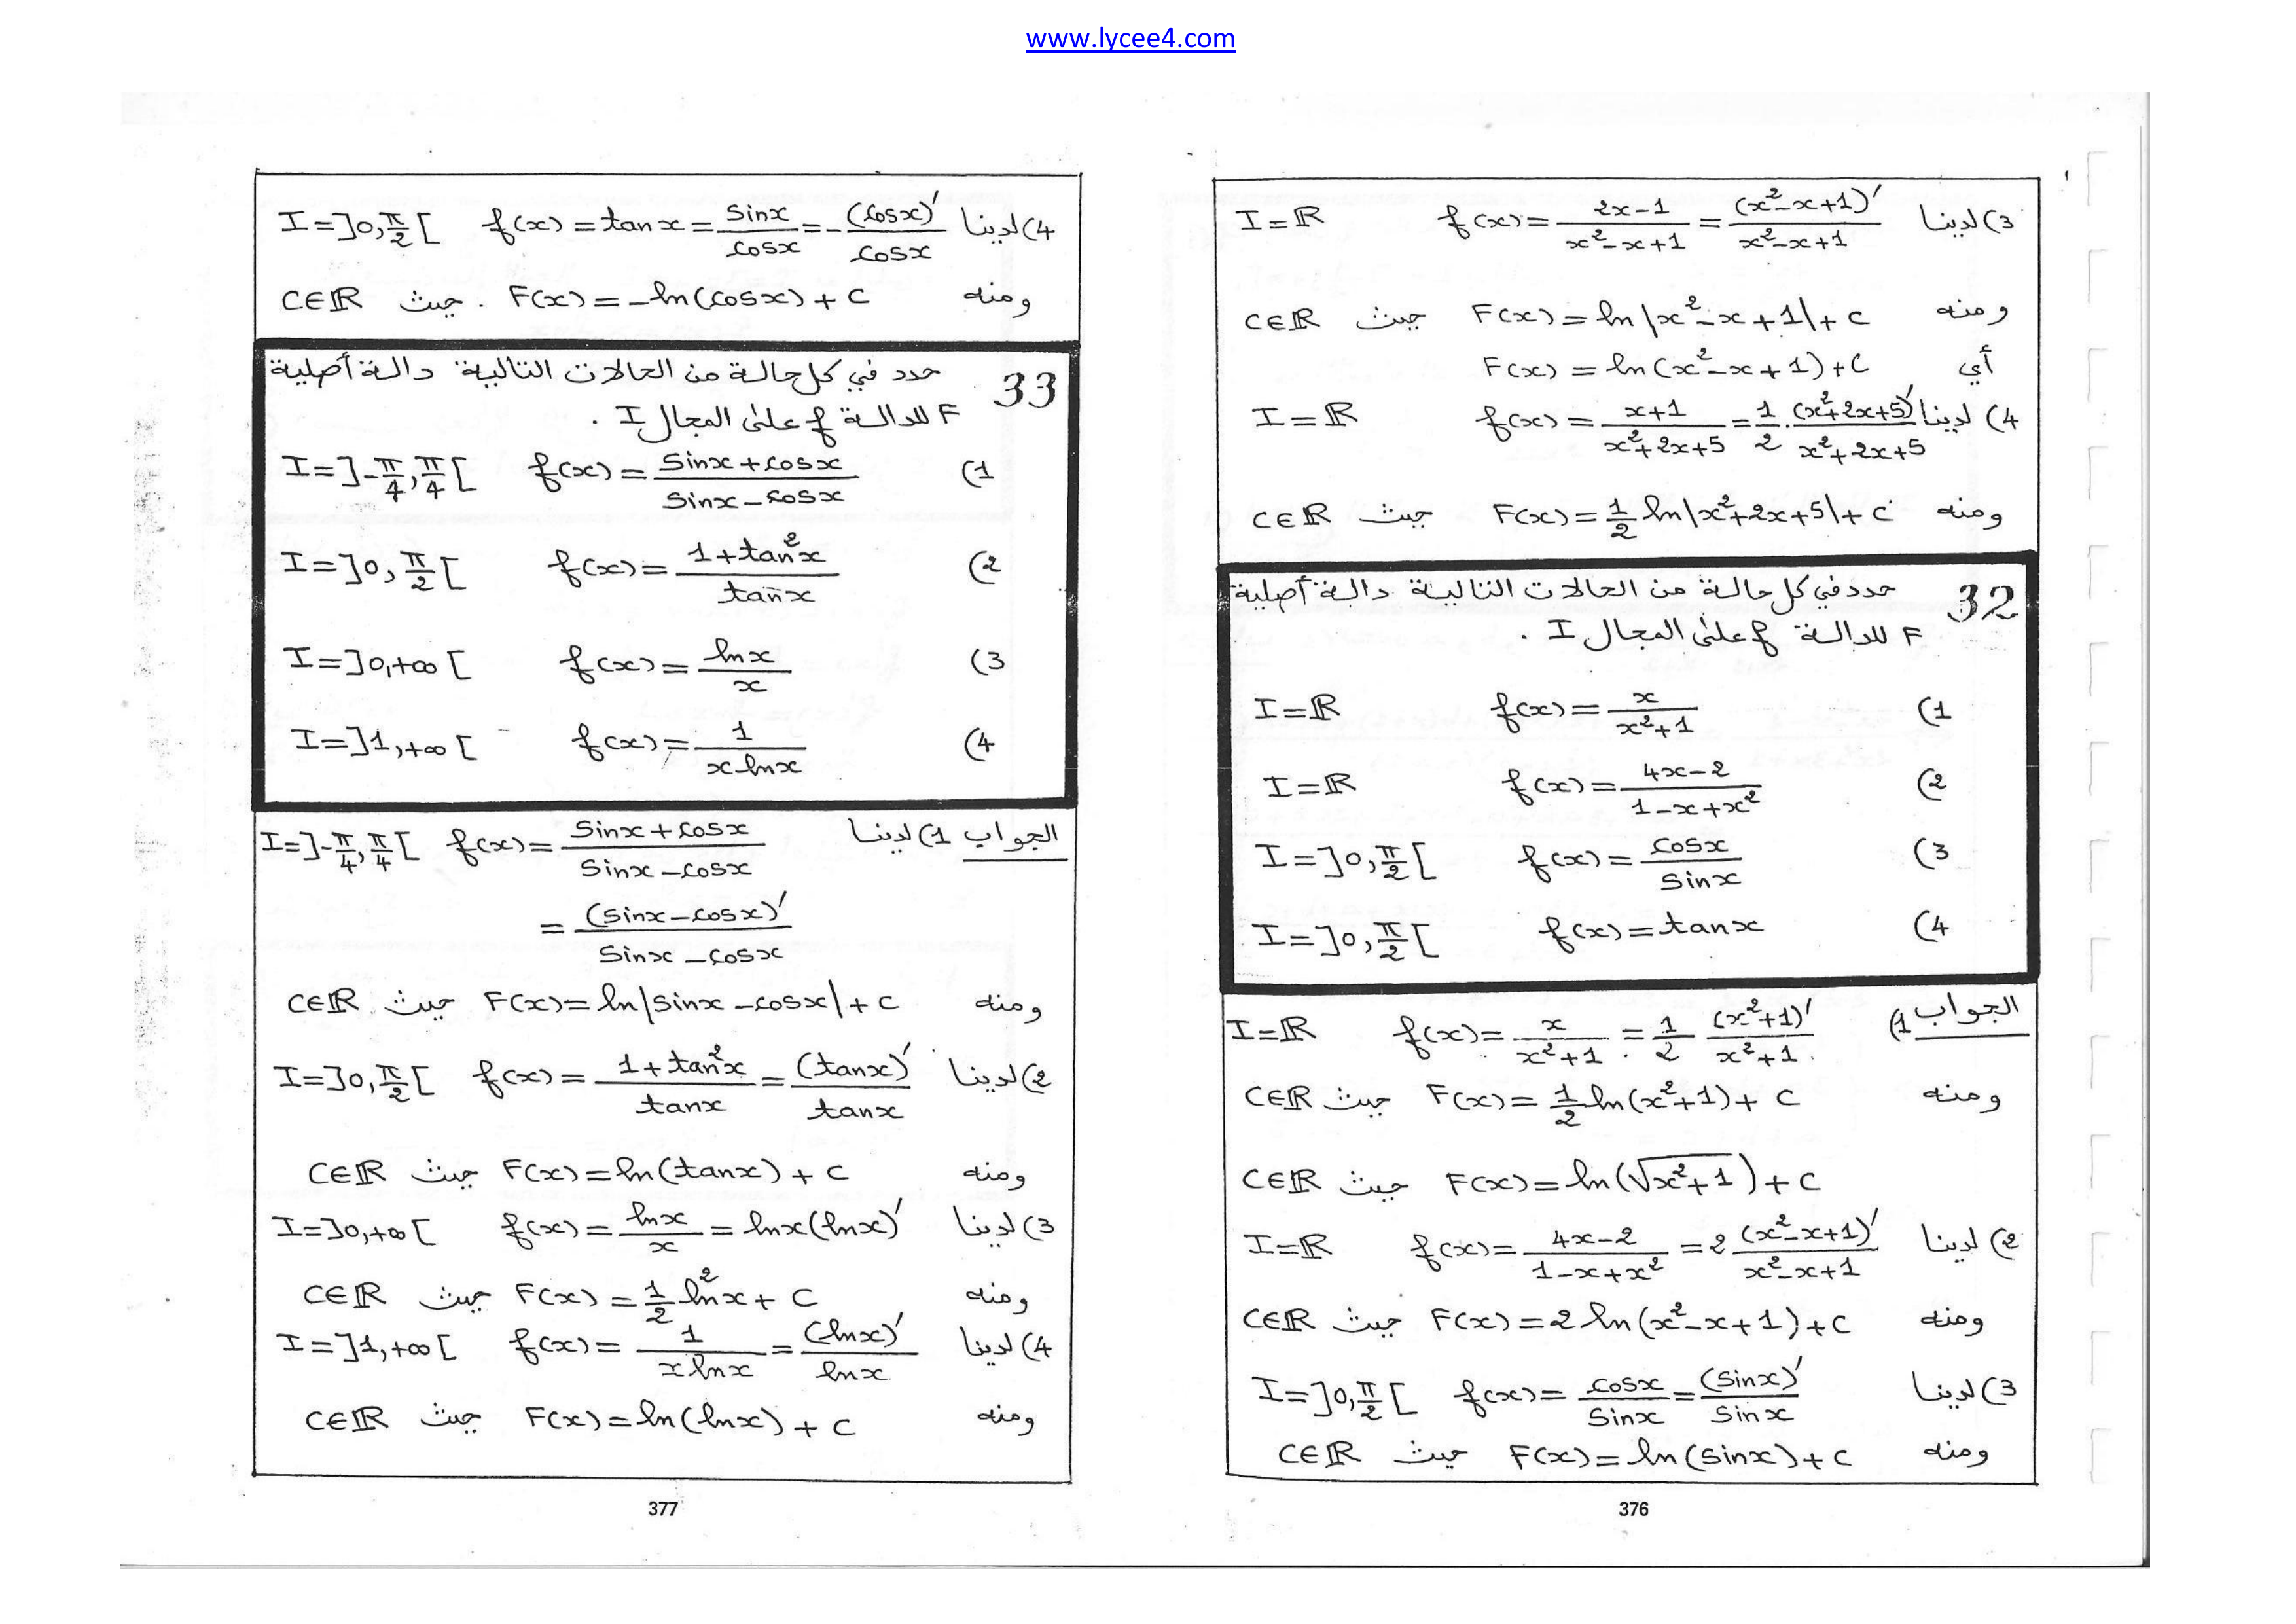 www.lycee4.com
3) لدينا f(x) = \frac{2x-1}{x²-x+1} = \frac{(x²-x+1)'}{x²-x+1} I = ℝ
ومنه F(x) = ln|x²-x+1| + c حيث c∈ℝ
أي F(x) = ln(x²-x+1) + c
4) لدينا f(x) = \frac{x+1}{x²+2x+5} = \frac{1}{2} . \frac{(x²+2x+5)'}{x²+2x+5} I = ℝ
ومنه F(x) = \frac{1}{2} ln|x²+2x+5| + c حيث c∈ℝ
32 حدد في كل حالة من الحالات التالية دالة أصلية
F للدالة f على المجال I .
1) f(x) = \frac{x}{x²+1} I = ℝ
2) f(x) = \frac{4x-2}{1-x+x²} I = ℝ
3) f(x) = \frac{cosx}{sinx} I = ]0, \frac{π}{2}[
4) f(x) = tanx I = ]0, \frac{π}{2}[
الجواب 1) f(x) = \frac{x}{x²+1} = \frac{1}{2} \frac{(x²+1)'}{x²+1} I = ℝ
ومنه F(x) = \frac{1}{2} ln(x²+1) + c حيث c∈ℝ
F(x) = ln(√(x²+1)) + c حيث c∈ℝ
2) لدينا f(x) = \frac{4x-2}{1-x+x²} = 2 \frac{(x²-x+1)'}{x²-x+1} I = ℝ
ومنه F(x) = 2 ln(x²-x+1) + c حيث c∈ℝ
3) لدينا f(x) = \frac{cosx}{sinx} = \frac{(sinx)'}{sinx} I = ]0, \frac{π}{2}[
ومنه F(x) = ln(sinx) + c حيث c∈ℝ
376
4) لدينا f(x) = tanx = \frac{sinx}{cosx} = - \frac{(cosx)'}{cosx} I = ]0, \frac{π}{2}[
ومنه F(x) = -ln(cosx) + c . حيث c∈ℝ
33 حدد في كل حالة من الحالات التالية دالة أصلية
F للدالة f على المجال I .
1) f(x) = \frac{sinx+cosx}{sinx-cosx} I = ]-\frac{π}{4}, \frac{π}{4}[
2) f(x) = \frac{1+tan²x}{tanx} I = ]0, \frac{π}{2}[
3) f(x) = \frac{lnx}{x} I = ]0,+∞[
4) f(x) = \frac{1}{xlnx} I = ]1,+∞[
الجواب 1) لدينا f(x) = \frac{sinx+cosx}{sinx-cosx} I = ]-\frac{π}{4}, \frac{π}{4}[
= \frac{(sinx-cosx)'}{sinx-cosx}
ومنه F(x) = ln|sinx-cosx| + c حيث c∈ℝ
2) لدينا f(x) = \frac{1+tan²x}{tanx} = \frac{(tanx)'}{tanx} I = ]0, \frac{π}{2}[
ومنه F(x) = ln(tanx) + c حيث c∈ℝ
3) لدينا f(x) = \frac{lnx}{x} = lnx(lnx)' I = ]0,+∞[
ومنه F(x) = \frac{1}{2} ln²x + c حيث c∈ℝ
4) لدينا f(x) = \frac{1}{xlnx} = \frac{(lnx)'}{lnx} I = ]1,+∞[
ومنه F(x) = ln(lnx) + c حيث c∈ℝ
377